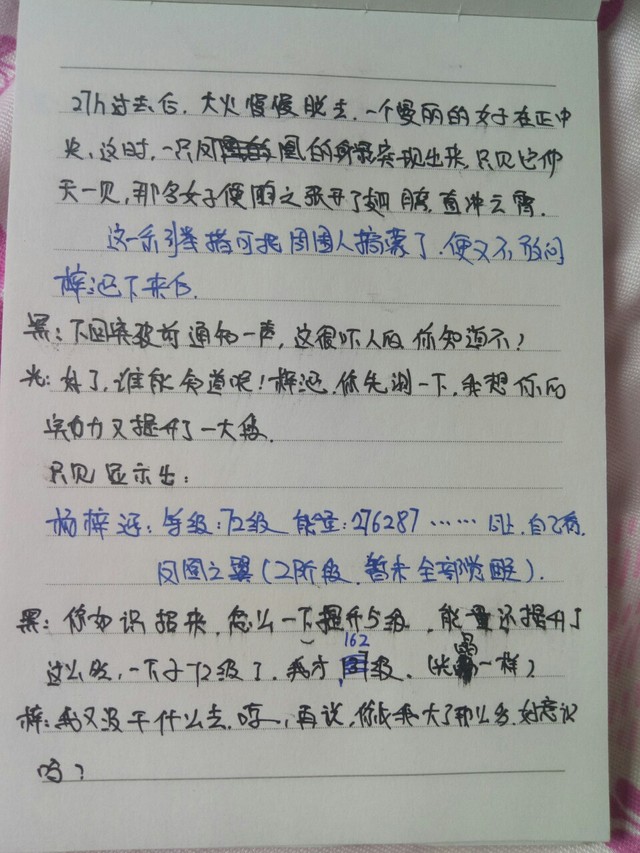 27h过去后，大火慢慢脱去，一个曼丽的女子在正中
央，这时，一只凤凰的身影突现出来，只见它仰
天一见，那名女子便随之张开了翅膀，直冲云霄．
这一系引举措可把周围人搞蒙了．便又不敢问
梓涵下来后．
黑：下回突破前通知一声，这很吓人的你知道不！
光：好了，谁能知道呢！梓涵．你先测一下，我想你的
实力又提升了一大段．
只见显示出：
杨梓涵：等级：72级 能量：276287 …… 同上，自己看．
凤凰之翼（2阶段，暂未全部觉醒）．
黑：你如识招来，怎么一下提升5级，能量还提升了
这么多，一下子72级了，我才162级．（光黑一样）
梓：我又没干什么去．哼，再说，你比我大了那么多．好意识
吗？